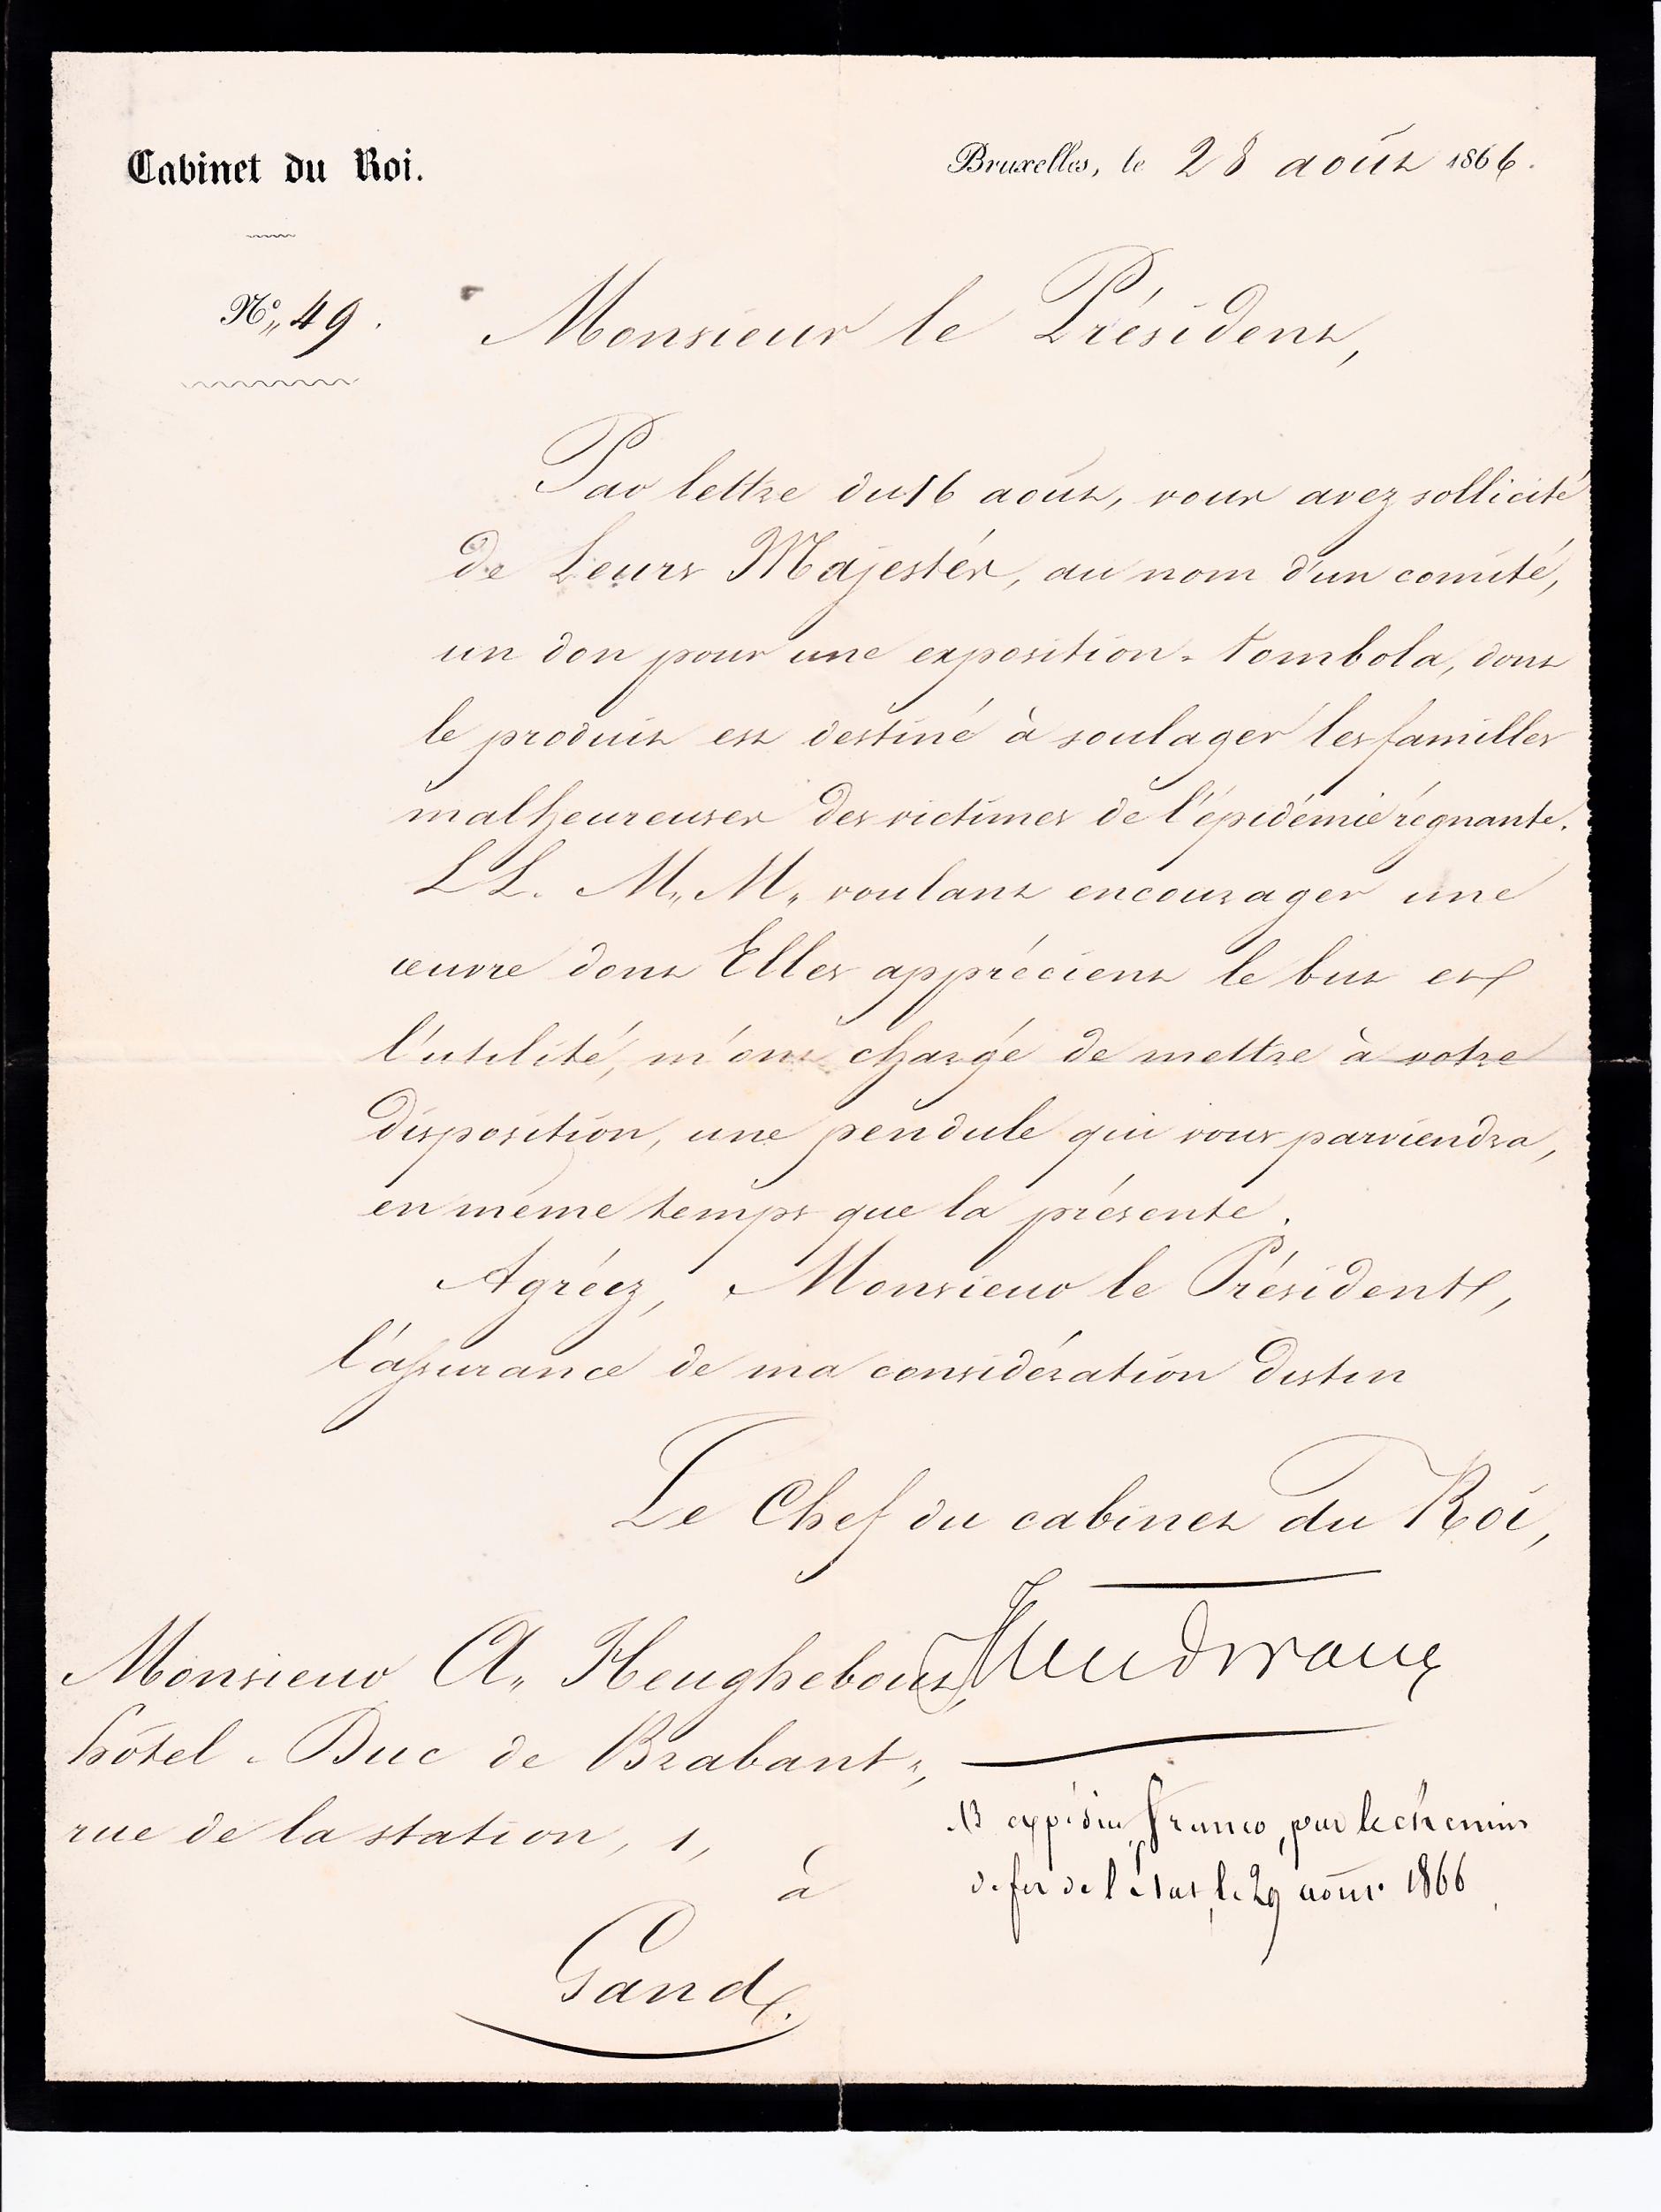 Cabinet du Roi.
Bruxelles, le 28 août 1866.
N° 49.
Monsieur le Président,
Par lettre du 16 août, vous avez sollicité
de Leurs Majestés, au nom d'un comité,
un don pour une exposition-tombola, dont
le produit est destiné à soulager les familles
malheureuses des victimes de l'épidémie régnante.
LL. M. M. voulant encourager une
œuvre dont Elles apprécient le but et
l'utilité, m'ont chargé de mettre à votre
disposition, une pendule qui vous parviendra,
en même temps que la présente.
Agréez, Monsieur le Président,
l'assurance de ma considération distin
Le Chef du cabinet du Roi,
Monsieur A. Heughebout,
hôtel Duc de Brabant,
rue de la station, 1,
à
Gand.
expédiée franco, par le chemin
de fer de l'état, le 29 août 1866